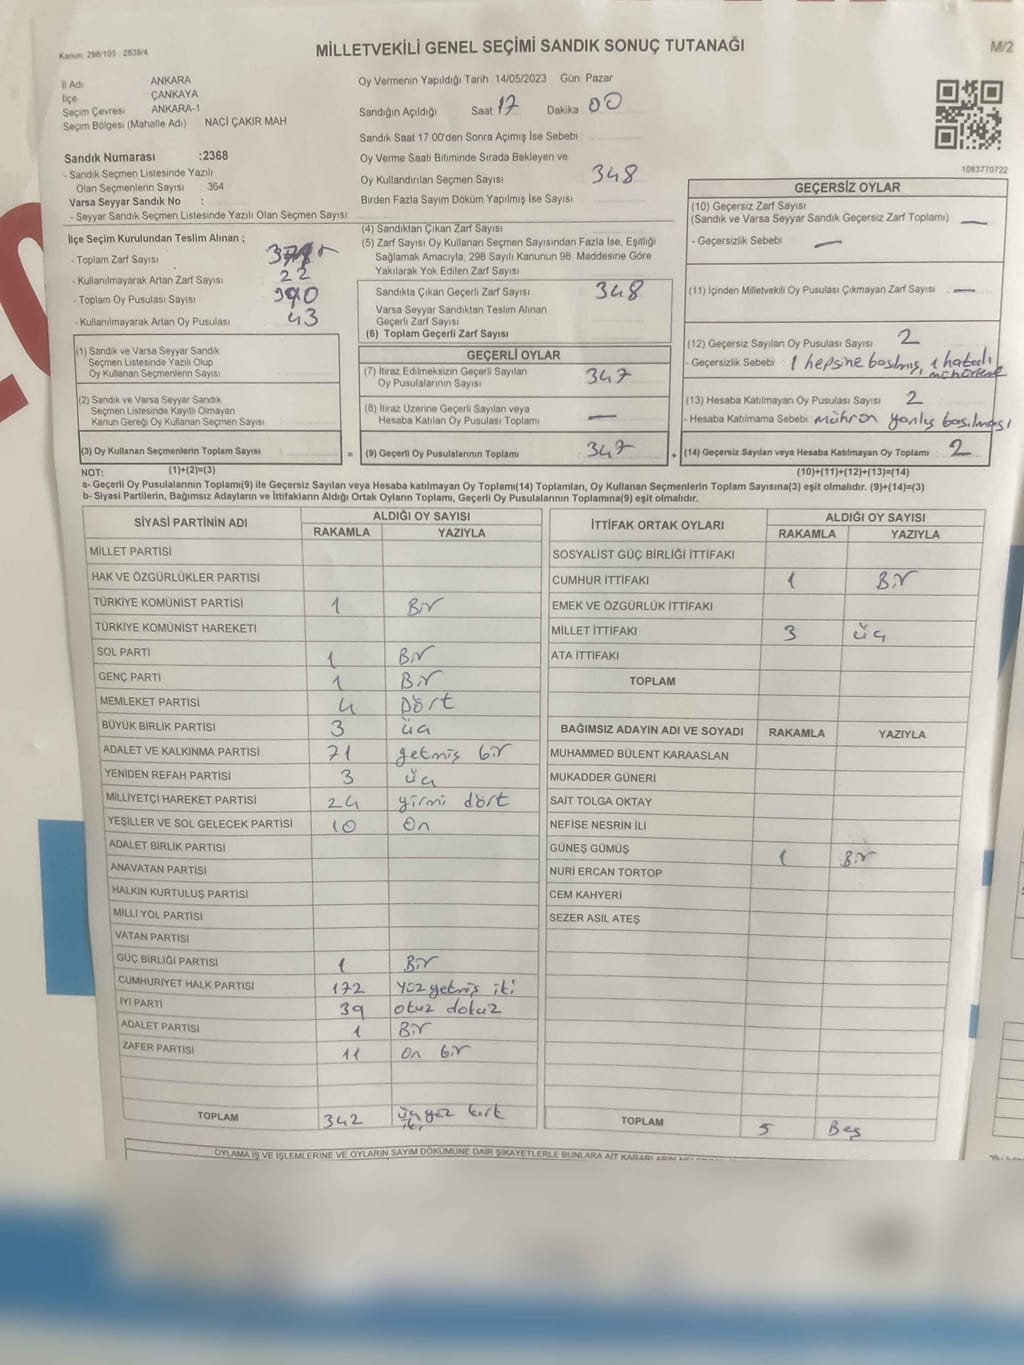 Kanun: 298/105 . 2839/4
MİLLETVEKİLİ GENEL SEÇİMİ SANDIK SONUÇ TUTANAĞI
M/2
İl Adı ANKARA
İlçe ÇANKAYA
Seçim Çevresi ANKARA-1
Seçim Bölgesi (Mahalle Adı) NACİ ÇAKIR MAH
Sandık Numarası :2368
- Sandık Seçmen Listesinde Yazılı
Olan Seçmenlerin Sayısı 364
Varsa Seyyar Sandık No :
- Seyyar Sandık Seçmen Listesinde Yazılı Olan Seçmen Sayısı:
Oy Vermenin Yapıldığı Tarih :14/05/2023 Gün: Pazar
Sandığın Açıldığı Saat: 17 Dakika : 00
Sandık Saat 17.00'den Sonra Açımış İse Sebebi
Oy Verme Saati Bitiminde Sırada Bekleyen ve
Oy Kullandırılan Seçmen Sayısı 348
Birden Fazla Sayım Döküm Yapılmış İse Sayısı
1083770722
İlçe Seçim Kurulundan Teslim Alınan ;
- Toplam Zarf Sayısı
- Kullanılmayarak Artan Zarf Sayısı : 22
- Toplam Oy Pusulası Sayısı : 390
- Kullanılmayarak Artan Oy Pusulası : 43
(1) Sandık ve Varsa Seyyar Sandık
Seçmen Listesinde Yazılı Olup
Oy Kullanan Seçmenlerin Sayısı
(2) Sandık ve Varsa Seyyar Sandık
Seçmen Listesinde Kayıtlı Olmayan
Kanun Gereği Oy Kullanan Seçmen Sayısı
(3) Oy Kullanan Seçmenlerin Toplam Sayısı :
(4) Sandıktan Çıkan Zarf Sayısı
(5) Zarf Sayısı Oy Kullanan Seçmen Sayısından Fazla İse, Eşitliği
Sağlamak Amacıyla, 298 Sayılı Kanunun 98. Maddesine Göre
Yakılarak Yok Edilen Zarf Sayısı
Sandıkta Çıkan Geçerli Zarf Sayısı : 348
Varsa Seyyar Sandıktan Teslim Alınan
Geçerli Zarf Sayısı
(6) Toplam Geçerli Zarf Sayısı
GEÇERLİ OYLAR
(7) İtiraz Edilmeksizin Geçerli Sayılan
Oy Pusulalarının Sayısı : 347
(8) İtiraz Üzerine Geçerli Sayılan veya
Hesaba Katılan Oy Pusulası Toplamı : —
= (9) Geçerli Oy Pusulalarının Toplamı : 347
GEÇERSİZ OYLAR
(10) Geçersiz Zarf Sayısı
(Sandık ve Varsa Seyyar Sandık Geçersiz Zarf Toplamı) : —
- Geçersizlik Sebebi : —
(11) İçinden Milletvekili Oy Pusulası Çıkmayan Zarf Sayısı : —
(12) Geçersiz Sayılan Oy Pusulası Sayısı : 2
- Geçersizlik Sebebi : 1 hepsine basılmış, 1 hatalı
mühürleme
(13) Hesaba Katılmayan Oy Pusulası Sayısı : 2
- Hesaba Katılmama Sebebi : mührün yanlış basılması
+ (14) Geçersiz Sayılan veya Hesaba Katılmayan Oy Toplamı : 2
NOT: (1)+(2)=(3) (10)+(11)+(12)+(13)=(14)
a- Geçerli Oy Pusulalarının Toplamı(9) ile Geçersiz Sayılan veya Hesaba katılmayan Oy Toplamı(14) Toplamları, Oy Kullanan Seçmenlerin Toplam Sayısına(3) eşit olmalıdır. (9)+(14)=(3)
b- Siyasi Partilerin, Bağımsız Adayların ve İttifakların Aldığı Ortak Oyların Toplamı, Geçerli Oy Pusulalarının Toplamına(9) eşit olmalıdır.
SİYASİ PARTİNİN ADI ALDIĞI OY SAYISI
RAKAMLA YAZIYLA
MİLLET PARTİSİ
HAK VE ÖZGÜRLÜKLER PARTİSİ
TÜRKİYE KOMÜNİST PARTİSİ 1 Bir
TÜRKİYE KOMÜNİST HAREKETİ
SOL PARTİ 1 Bir
GENÇ PARTİ 1 Bir
MEMLEKET PARTİSİ 4 Dört
BÜYÜK BİRLİK PARTİSİ 3 üç
ADALET VE KALKINMA PARTİSİ 71 yetmiş bir
YENİDEN REFAH PARTİSİ 3 üç
MİLLİYETÇİ HAREKET PARTİSİ 24 yirmi dört
YEŞİLLER VE SOL GELECEK PARTİSİ 10 On
ADALET BİRLİK PARTİSİ
ANAVATAN PARTİSİ
HALKIN KURTULUŞ PARTİSİ
MİLLİ YOL PARTİSİ
VATAN PARTİSİ
GÜÇ BİRLİĞİ PARTİSİ 1 Bir
CUMHURİYET HALK PARTİSİ 172 yüz yetmiş iki
İYİ PARTİ 39 otuz dokuz
ADALET PARTİSİ 1 Bir
ZAFER PARTİSİ 11 On bir
TOPLAM 342 üç yüz kırk
iki
İTTİFAK ORTAK OYLARI ALDIĞI OY SAYISI
RAKAMLA YAZIYLA
SOSYALİST GÜÇ BİRLİĞİ İTTİFAKI
CUMHUR İTTİFAKI 1 Bir
EMEK VE ÖZGÜRLÜK İTTİFAKI
MİLLET İTTİFAKI 3 üç
ATA İTTİFAKI
TOPLAM
BAĞIMSIZ ADAYIN ADI VE SOYADI RAKAMLA YAZIYLA
MUHAMMED BÜLENT KARAASLAN
MUKADDER GÜNERİ
SAİT TOLGA OKTAY
NEFİSE NESRİN İLİ
GÜNEŞ GÜMÜŞ 1 Bir
NURİ ERCAN TORTOP
CEM KAHYERİ
SEZER ASİL ATEŞ
TOPLAM 5 Beş
OYLAMA İŞ VE İŞLEMLERİNE VE OYLARIN SAYIM DÖKÜMÜNE DAİR ŞİKAYETLERLE BUNLARA AİT KARARLARIN